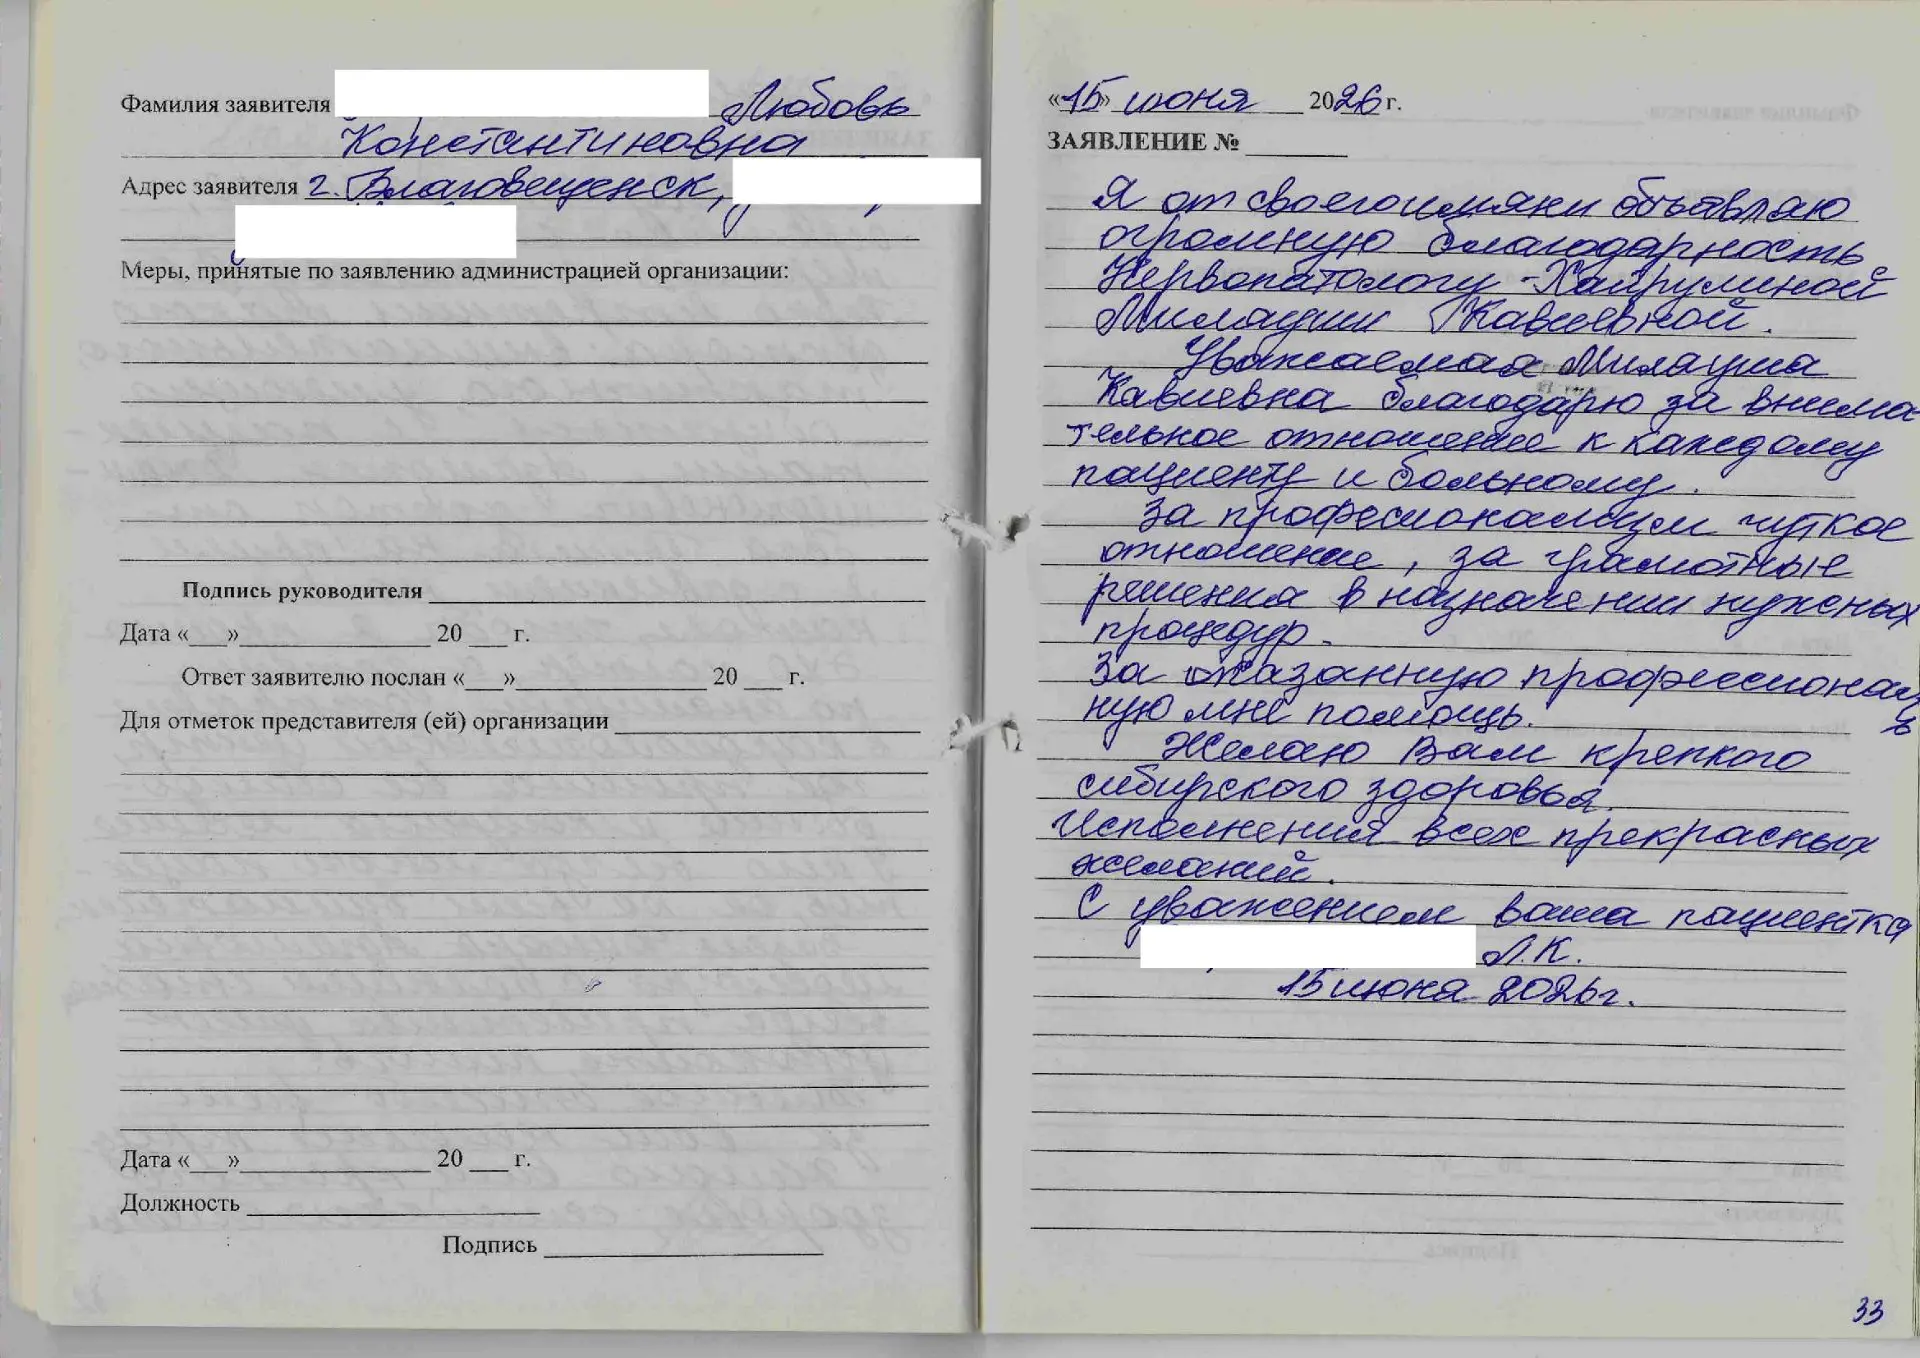 Фамилия заявителя Любовь
Константиновна
Адрес заявителя г. Благовещенск,
Меры, принятые по заявлению администрацией организации:
Подпись руководителя
Дата «___»______________ 20 ___ г.
Ответ заявителю послан «___»______________ 20 ___ г.
Для отметок представителя (ей) организации
Дата «___»______________ 20 ___ г.
Должность
Подпись
«15» июня 2026 г.
ЗАЯВЛЕНИЕ №
Я от своего имяни объявляю
огромную благодарность
Нервопатологу - Хайрулиной
Милауши Кавиевной.
Уважаемая Милауша
Кавиевна благодарю за внима-
тельное отношение к каждому
пациенту и больному.
За професионализм чуткое
отношение, за грамотные
решения в назначении нужных
процедур.
За оказанную профессиональ
ную мне помощь.
Желаю Вам крепкого
сибирского здоровья.
Исполнения всех прекрасных
желаний.
С уважением ваша пациентка
Л.К.
15 июня 2026 г.
33